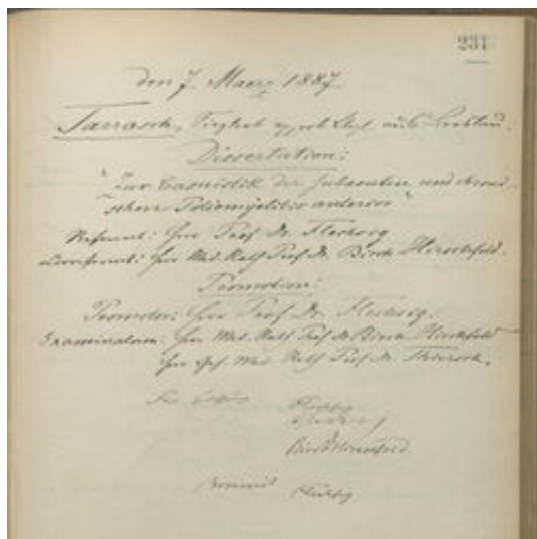 231
den 7. Maerz 1887.
Tarrasch, Siegbert approb. Arzt aus Breslau.
Dissertation:
"Zur Casuistik der subacuten und chroni-
schen Poliomyelitis anterior"
Referent: Herr Prof. Dr. Flechsig
Correferent: Herr Med. Rath Prof. Dr. Birch Hirschfeld.
Promotion:
Promotor: Herr Prof. Dr. Flechsig.
Examinatoren: Herr Med. Rath Prof. Dr. Birch Hirschfeld
Herr Geh. Med. Rath Prof. Dr. Thiersch.
Flechsig
Birch Hirschfeld
Flechsig